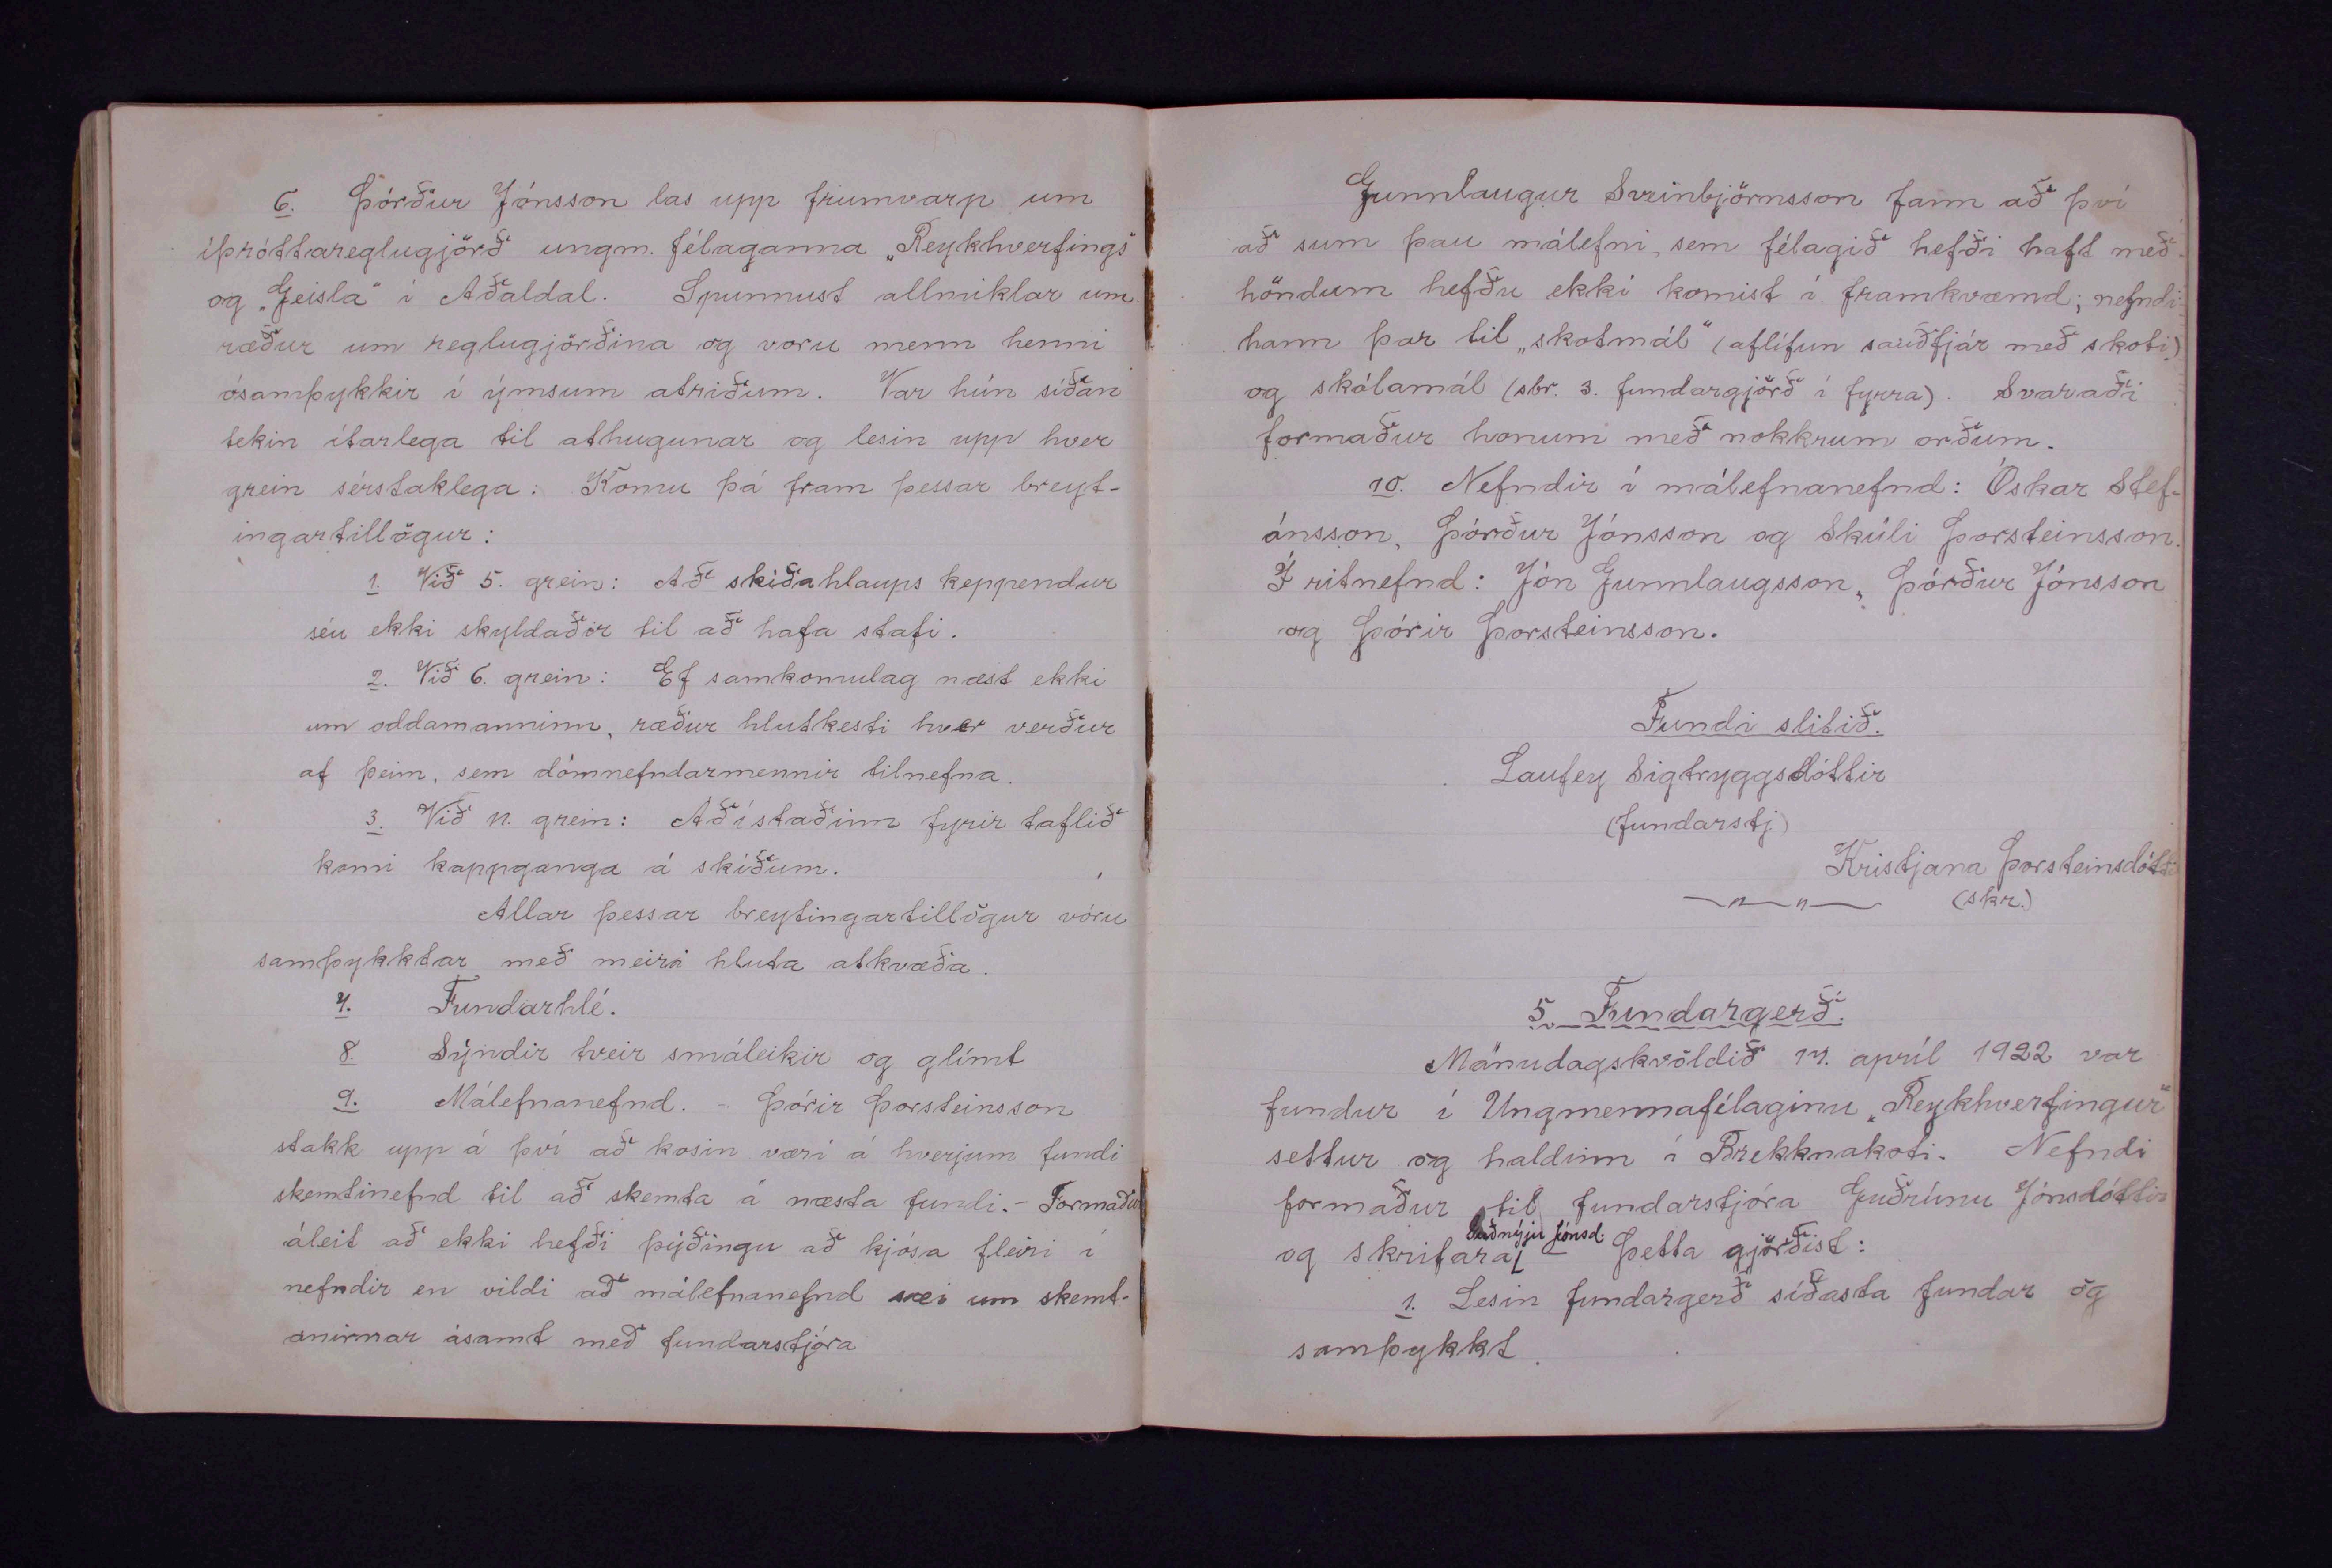 6. Þórður Jónsson las upp frumvarp um
íþróttareglugjörð ungm. félaganna „Reykhverfings"
og „Geisla" í Aðaldal. Spunnust allmiklar um
ræður um reglugjörðina og voru menn henni
ósamþykkir í ýmsum atriðum. Var hún síðan
tekin ítarlega til athugunar og lesin upp hver
grein sérstaklega. Komu þá fram þessar breyt-
ingartillögur:
1. Við 5. grein: Að skíðahlaups keppendur
séu ekki skyldaðir til að hafa stafi.
2. Við 6. grein: Ef samkomulag næst ekki
um oddamanninn, ræður hlutkesti hver verður
af þeim, sem dómnefndarmennir tilnefna.
3. Við 11. grein: Að í staðinn fyrir taflið
komi kappganga á skíðum.
Allar þessar breytingartillögur vóru
samþykktar með meiri hluta atkvæða.
7. Fundarhlé.
8. Sýndir tveir smáleikir og glímt
9. Málefnanefnd. - Þórir Þorsteinsson
stakk upp á því að kosin væri á hverjum fundi
skemtinefnd til að skemta á næsta fundi. - Formaður
áleit að ekki hefði þýðingu að kjósa fleiri í
nefndir en vildi að málefnanefnd sæi um skemt-
anirnar ásamt með fundarstjóra
Gunnlaugur Sveinbjörnsson fann að því
að sum þau málefni, sem félagið hefði haft með-
höndum hefðu ekki komist í framkvæmd; nefndi
hann þar til „skotmál" (aflífun sauðfjár með skoti)
og skólamál (sbr. 3. fundargjörð í fyrra). Svaraði
formaður honum með nokkrum orðum.
10. Nefndir í málefnanefnd: Óskar Stef-
ánsson, Þórður Jónsson og Skúli Þorsteinsson.
Í ritnefnd: Jón Gunnlaugsson, Þórður Jónsson
og Þórir Þorsteinsson.
Fundi slitið.
Laufey Sigtryggsdóttir
(fundarstj.)
Kristjana Þorsteinsdótti
—"—"— (skr.)
5. Fundargerð.
Mánudagskvöldið 17. apríl 1922 var
fundur í Ungmennafélaginu „Reykhverfingur"
settur og haldinn í Brekknakoti. Nefndi
formaður til fundarstjóra Guðrúnu Jónsdóttir
og skrifara Guðnýju Jónsd. - Þetta gjörðist:
1. Lesin fundargerð síðasta fundar og
samþykkt.